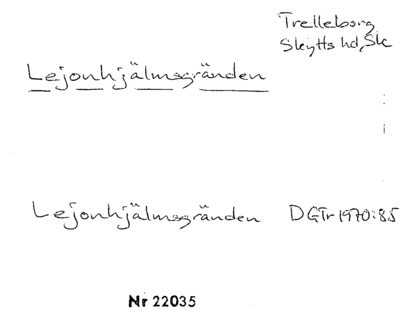 Trelleborg
Skytts hd, Sk
Lejonhjälmsgränden
Lejonhjälmsgränden DGTr 1970:85
Nr 22035